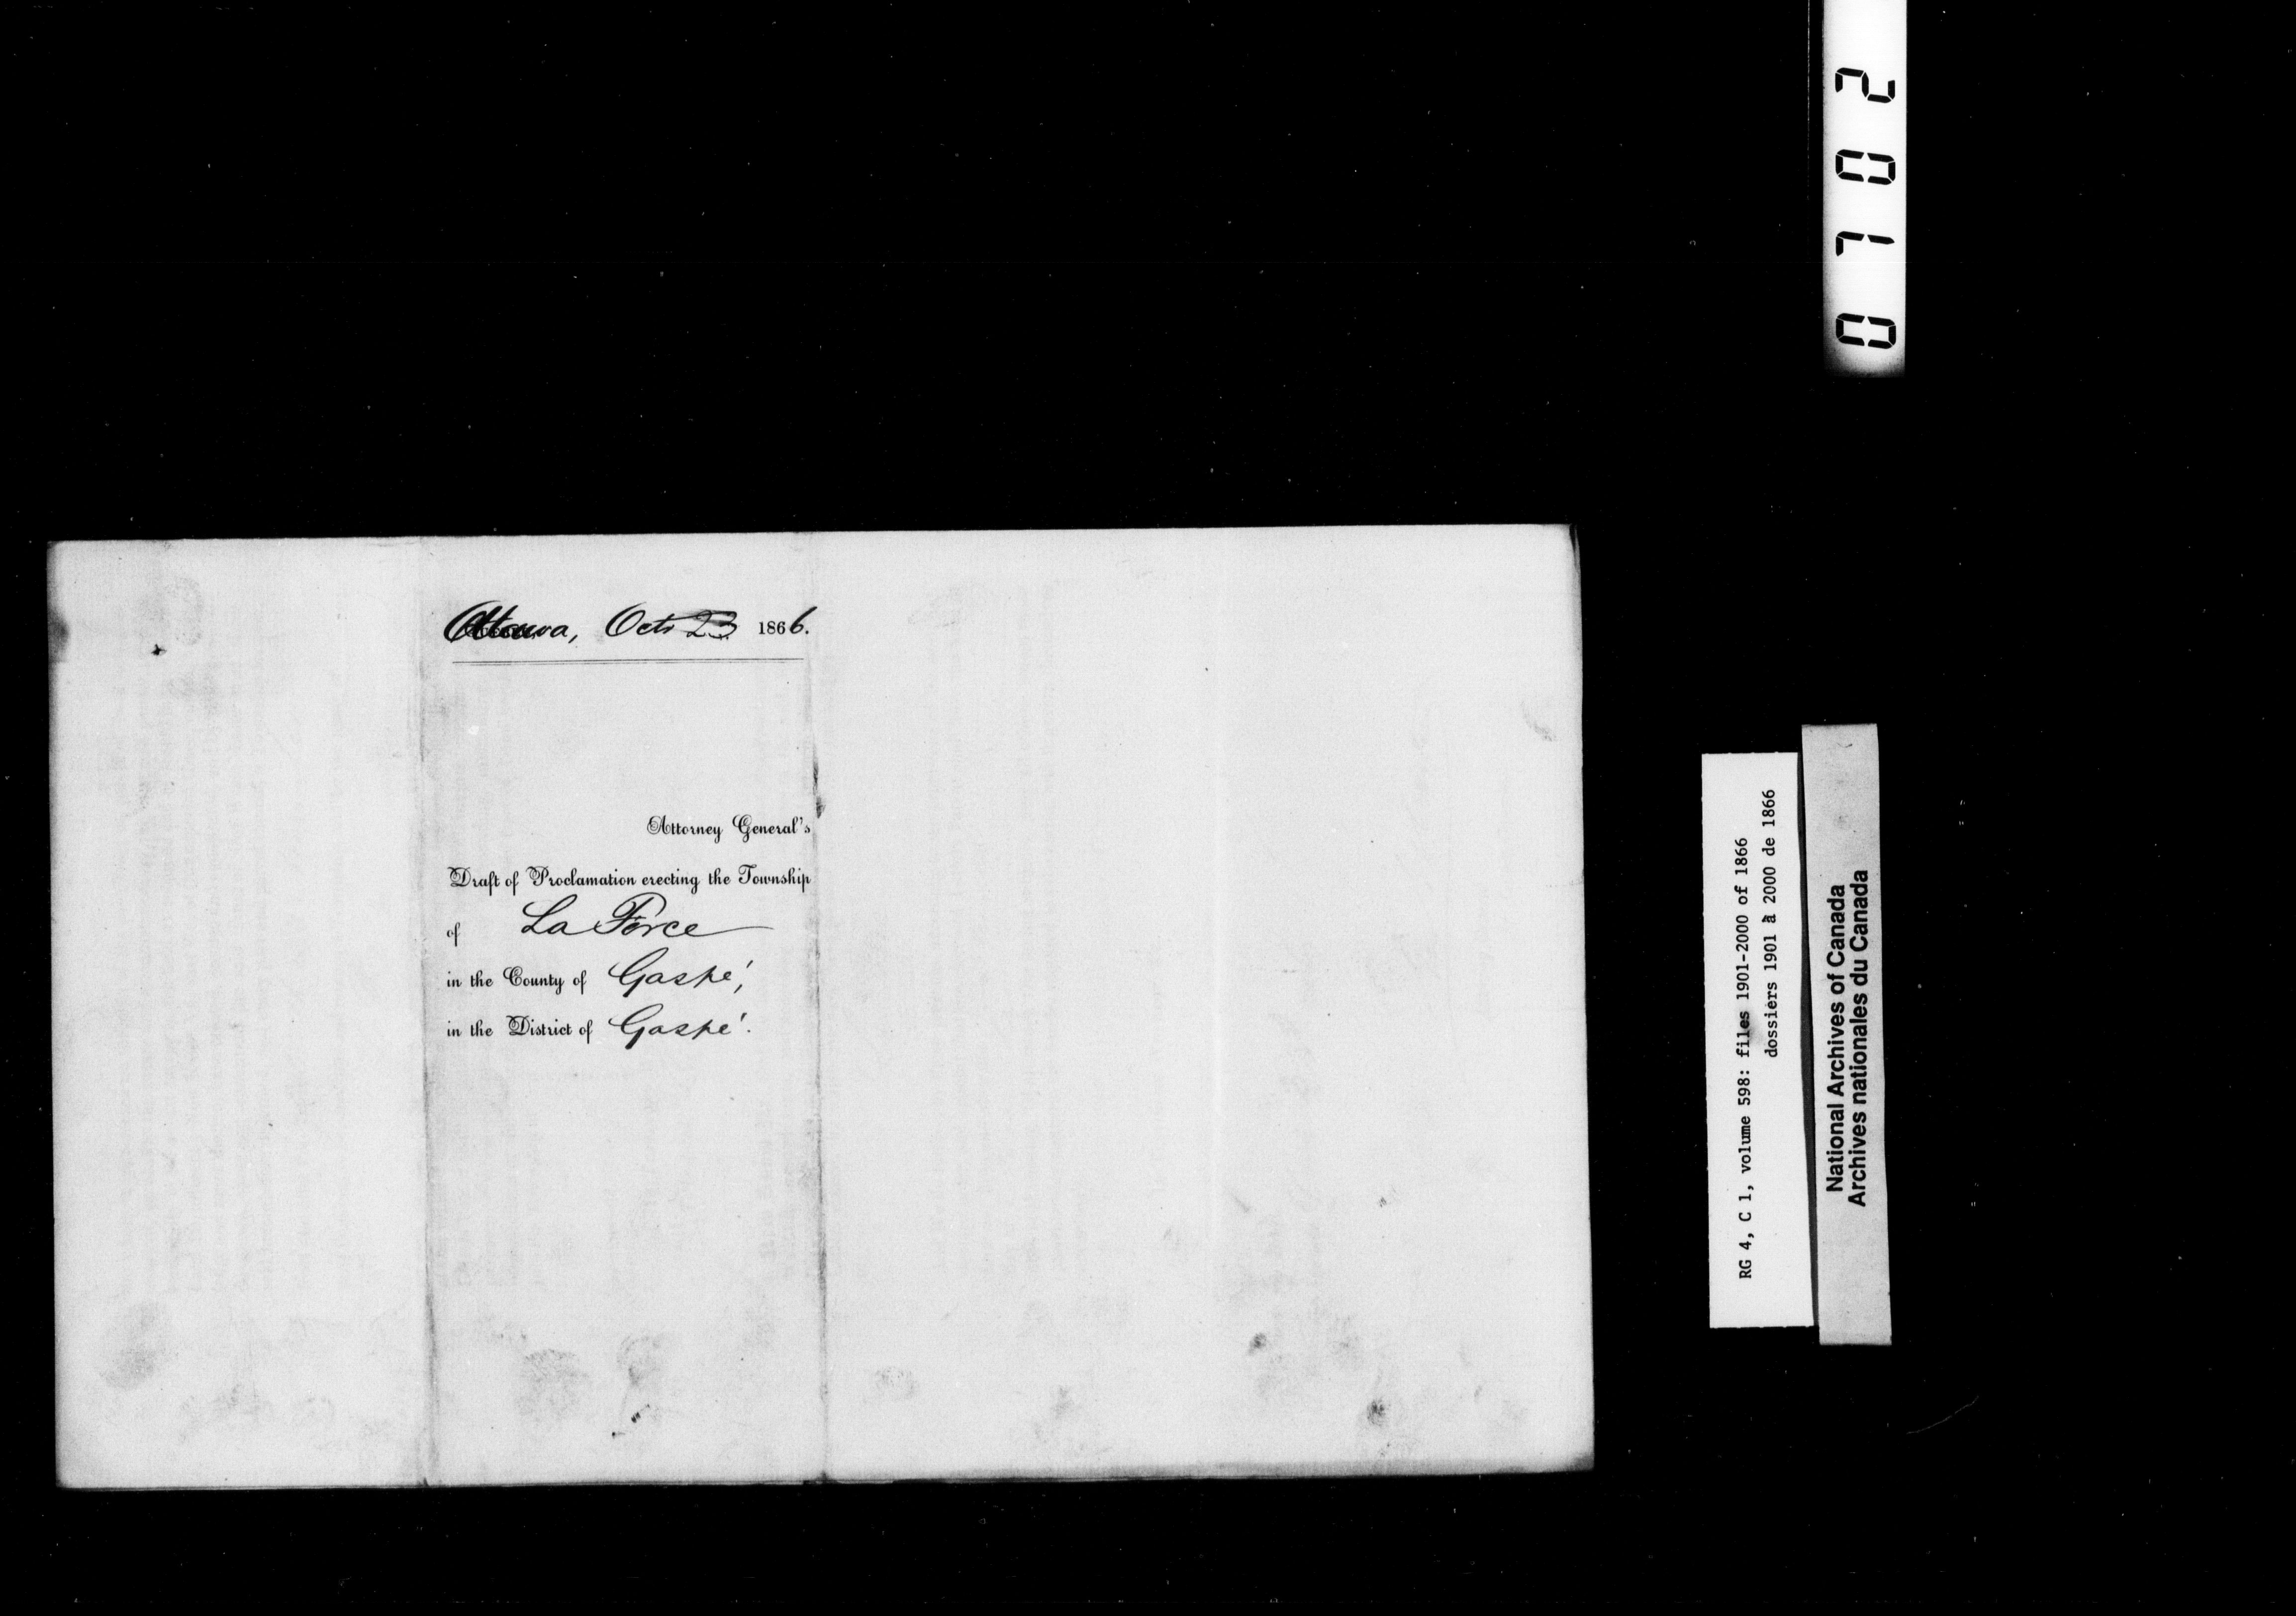 Ottawa, Octr 23 1866.
Attorney General's
Draft of Proclamation erecting the Township
of La Force
in the County of Gaspé,
in the District of Gaspé.
0702
RG 4, C 1, volume 598: files 1901-2000 of 1866
dossiers 1901 à 2000 de 1866
National Archives of Canada
Archives nationales du Canada